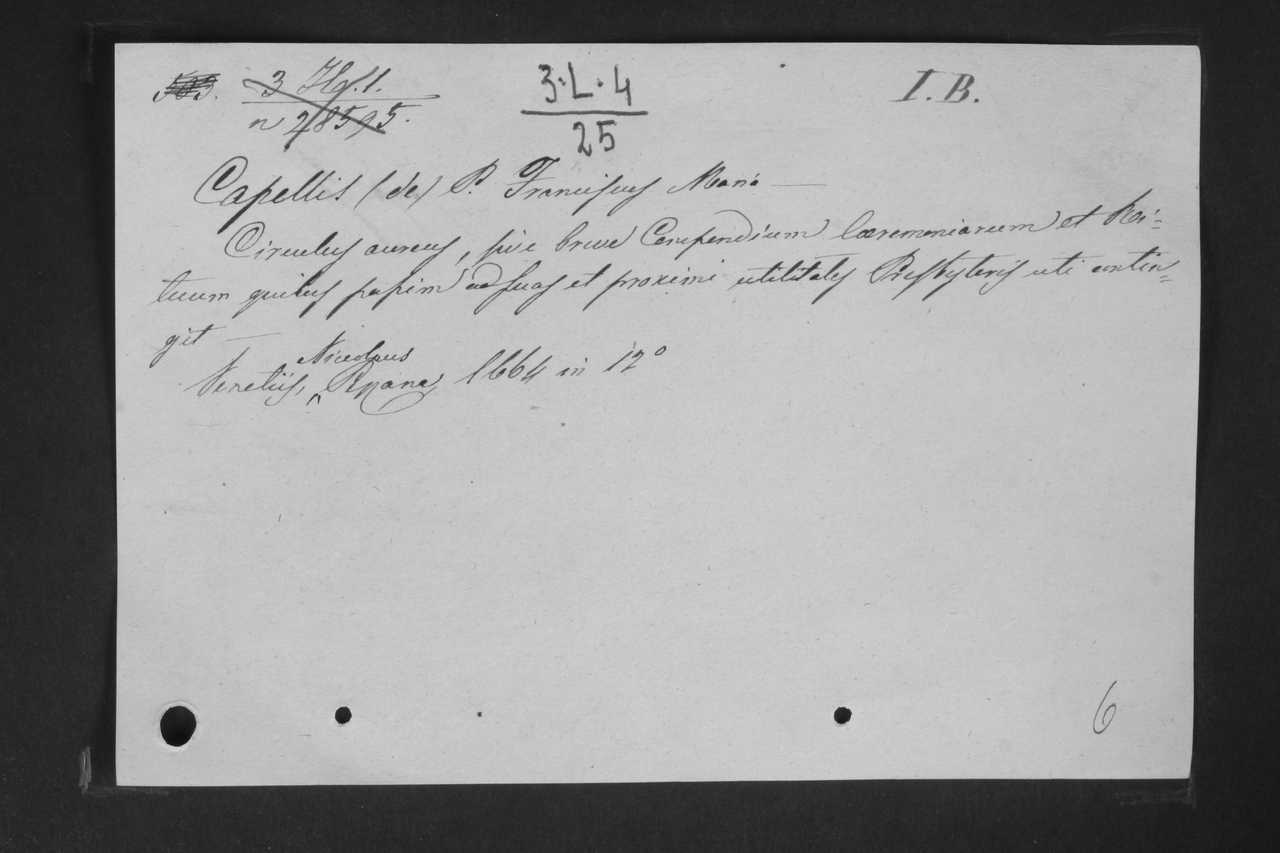 3
n 28595.
3·L·4
25
I. B.
Capellis (de) P. Franciscus Maria —
Circulus aureus, sive breve Compendium Caeremoniarum et Ri-
tuum quibus passim ad suas et proximi utilitates Presbyteris uti contin-
git —
Nicolaus
Venetiis, Pezzana 1664 in 12º
6